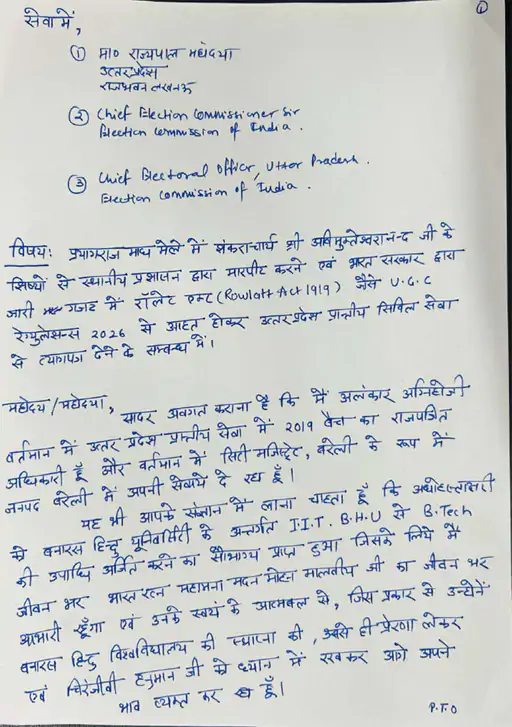 ①
सेवा में,
① मा० राज्यपाल महोदया
उत्तर प्रदेश
राजभवन लखनऊ
② Chief Election Commissioner Sir
Election Commission of India.
③ Chief Electoral Officer, Uttar Pradesh.
Election Commission of India.
विषय: प्रयागराज माघ मेले में शंकराचार्य श्री अविमुक्तेश्वरानन्द जी के
शिष्यों से स्थानीय प्रशासन द्वारा मारपीट करने एवं भारत सरकार द्वारा
जारी गजट में रॉलेट एक्ट (Rowlatt Act 1919) जैसे U.G.C
रेग्युलेसन्स 2026 से आहत होकर उत्तर प्रदेश प्रान्तीय सिविल सेवा
से त्यागपत्र देने के सम्बन्ध में।
महोदय/महोदया,
सादर अवगत कराना है कि मैं अलंकार अग्निहोत्री
वर्तमान में उत्तर प्रदेश प्रान्तीय सेवा में 2019 बैच का राजपत्रित
अधिकारी हूँ और वर्तमान में सिटी मजिस्ट्रेट, बरेली के रूप में
जनपद बरेली में अपनी सेवायें दे रहा हूँ।
यह भी आपके संज्ञान में लाना चाहता हूँ कि अधोहस्ताक्षरी
को बनारस हिन्दू यूनिवर्सिटी के अन्तर्गत I.I.T. B.H.U से B.Tech
की उपाधि अर्जित करने का सौभाग्य प्राप्त हुआ जिसके लिये मैं
जीवन भर भारत रत्न महामना मदन मोहन मालवीय जी का जीवन भर
आभारी रहूँगा एवं उनके स्वयं के आत्मबल से, जिस प्रकार से उन्होनें
बनारस हिन्दू विश्वविद्यालय की स्थापना की, उनसे ही प्रेरणा लेकर
एवं चिरंजीवी हनुमान जी को ध्यान में रखकर आगे अपने
भाव व्यक्त कर रहा हूँ।
P.T.O